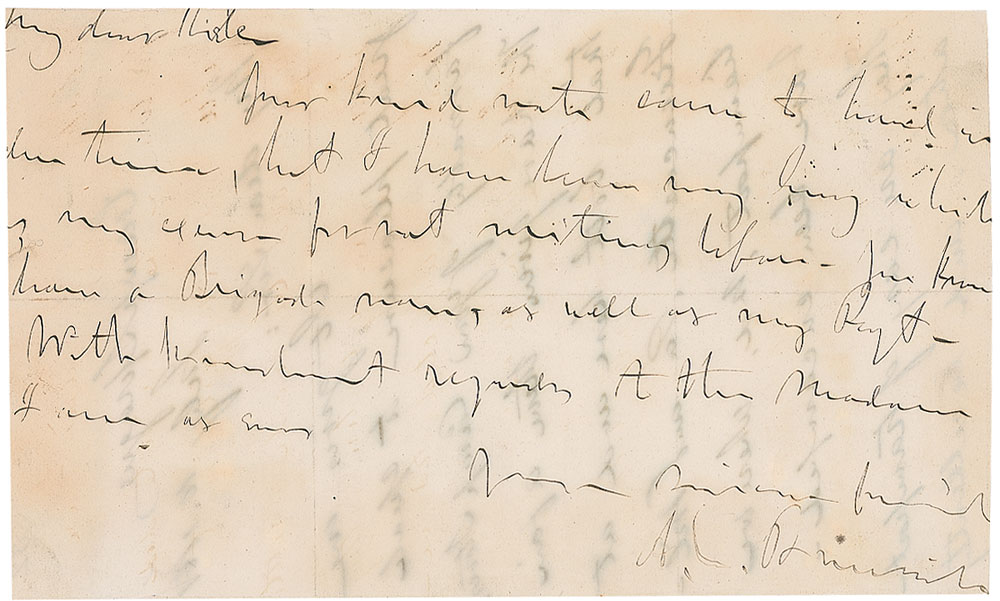 My dear
Your kind note came to hand in
due time, but I have been very busy which
is my excuse for not writing before – You know
have a Brigade now, as well as my Regt –
With kindest regards to the Madame
I am as ever
Your sincere friend